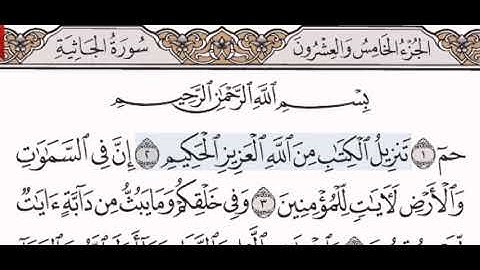 الجُزْءُ الخَامِسُ وَالعِشْرُونَ
سُورَةُ الجَاثِيَةِ
بِسْمِ ٱللَّهِ ٱلرَّحْمَٰنِ ٱلرَّحِيمِ
حمٓ ١ تَنزِيلُ ٱلْكِتَٰبِ مِنَ ٱللَّهِ ٱلْعَزِيزِ ٱلْحَكِيمِ ٢ إِنَّ فِى ٱلسَّمَٰوَٰتِ
وَٱلْأَرْضِ لَءَايَٰتٍ لِّلْمُؤْمِنِينَ ٣ وَفِى خَلْقِكُمْ وَمَا يَبُثُّ مِن دَآبَّةٍ ءَايَٰتٌ